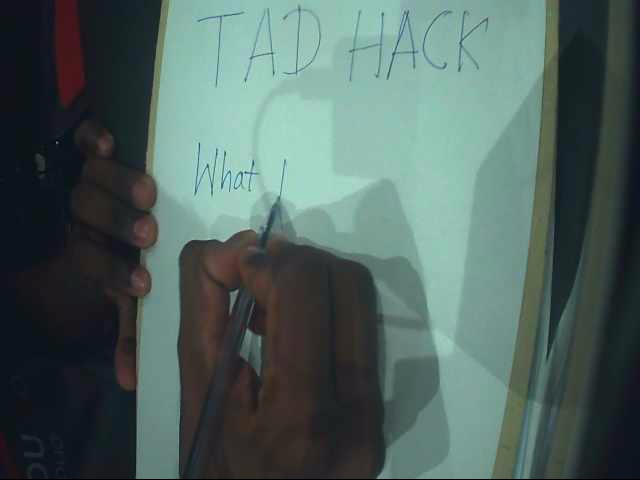 TAD HACK
What